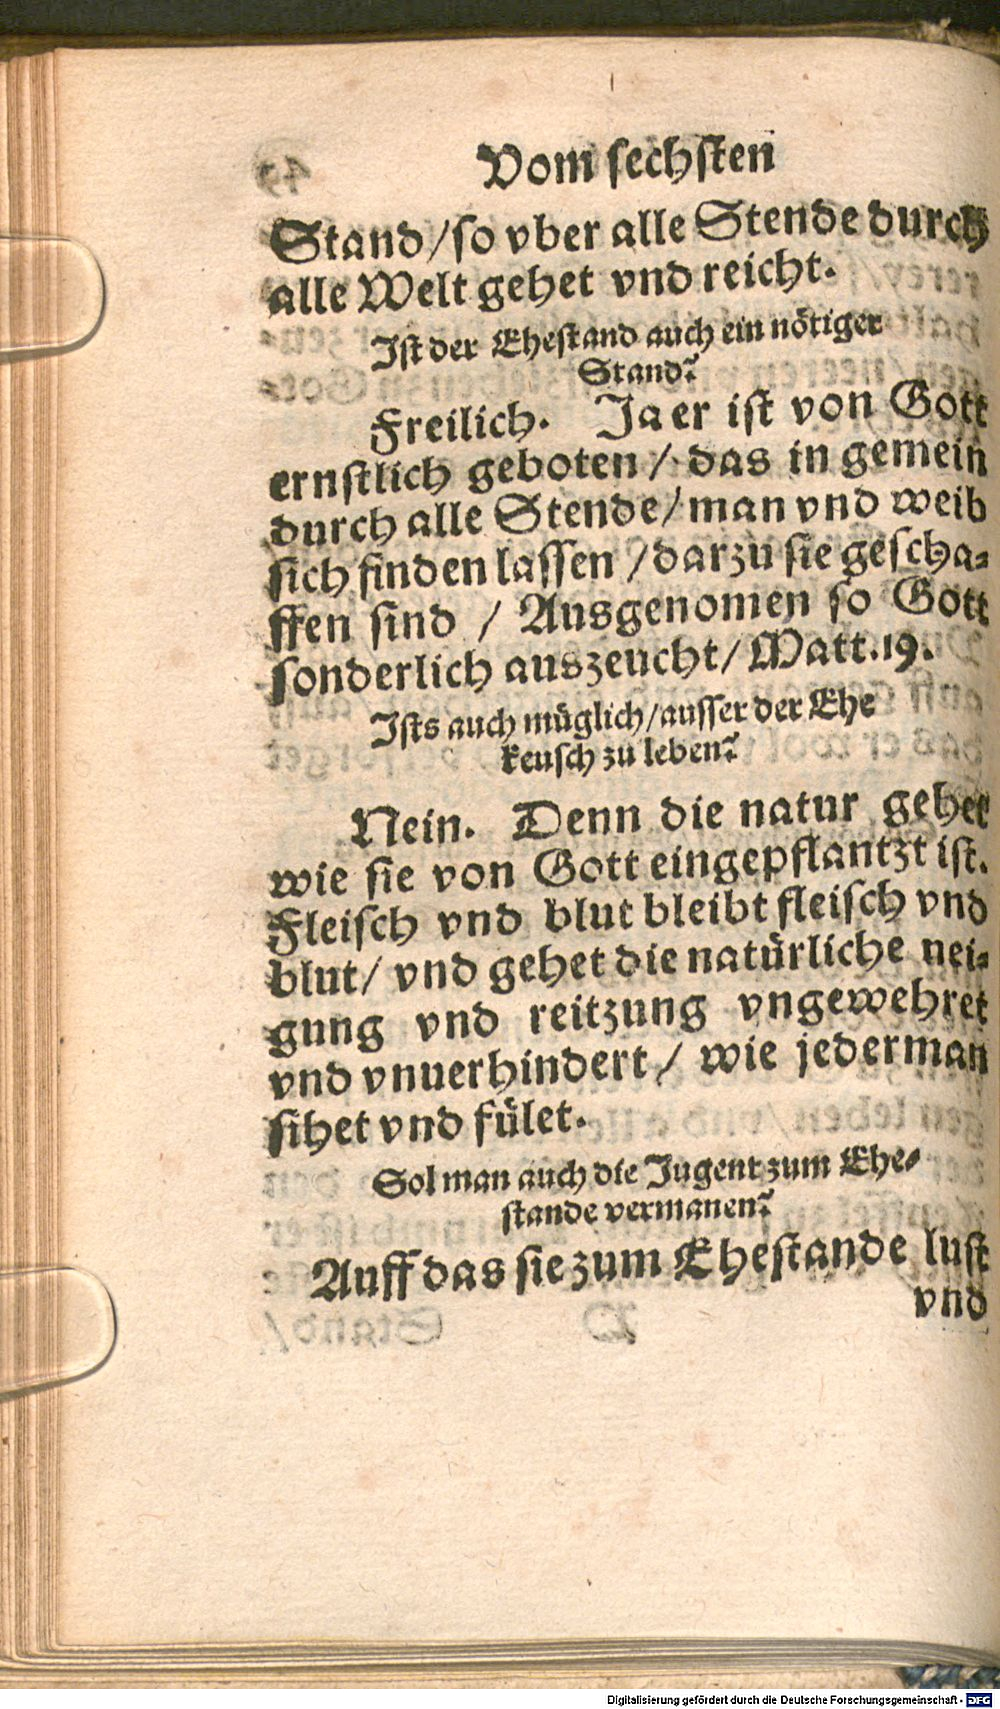 Vom sechsten
Stand/so vber alle Stende durch
alle Welt gehet vnd reicht.
Ist der Ehestand auch ein nötiger
Stand?
Freilich. Ja er ist von Gott
ernstlich geboten/ das in gemein
durch alle Stende/man vnd weib
sich finden lassen /darzu sie gescha-
ffen sind / Ausgenomen so Gott
sonderlich auszeucht/ Matt.19.
Ists auch müglich/ausser der Ehe
keusch zu leben?
Nein. Denn die natur gehet
wie sie von Gott eingepflantzt ist.
Fleisch vnd blut bleibt fleisch vnd
blut/ vnd gehet die natürliche nei-
gung vnd reitzung vngewehret
vnd vnuerhindert/ wie jederman
sihet vnd fület.
Sol man auch die Jugent zum Ehe-
stande vermanen?
Auff das sie zum Ehestande lust
vnd
Digitalisierung gefördert durch die Deutsche Forschungsgemeinschaft - DFG